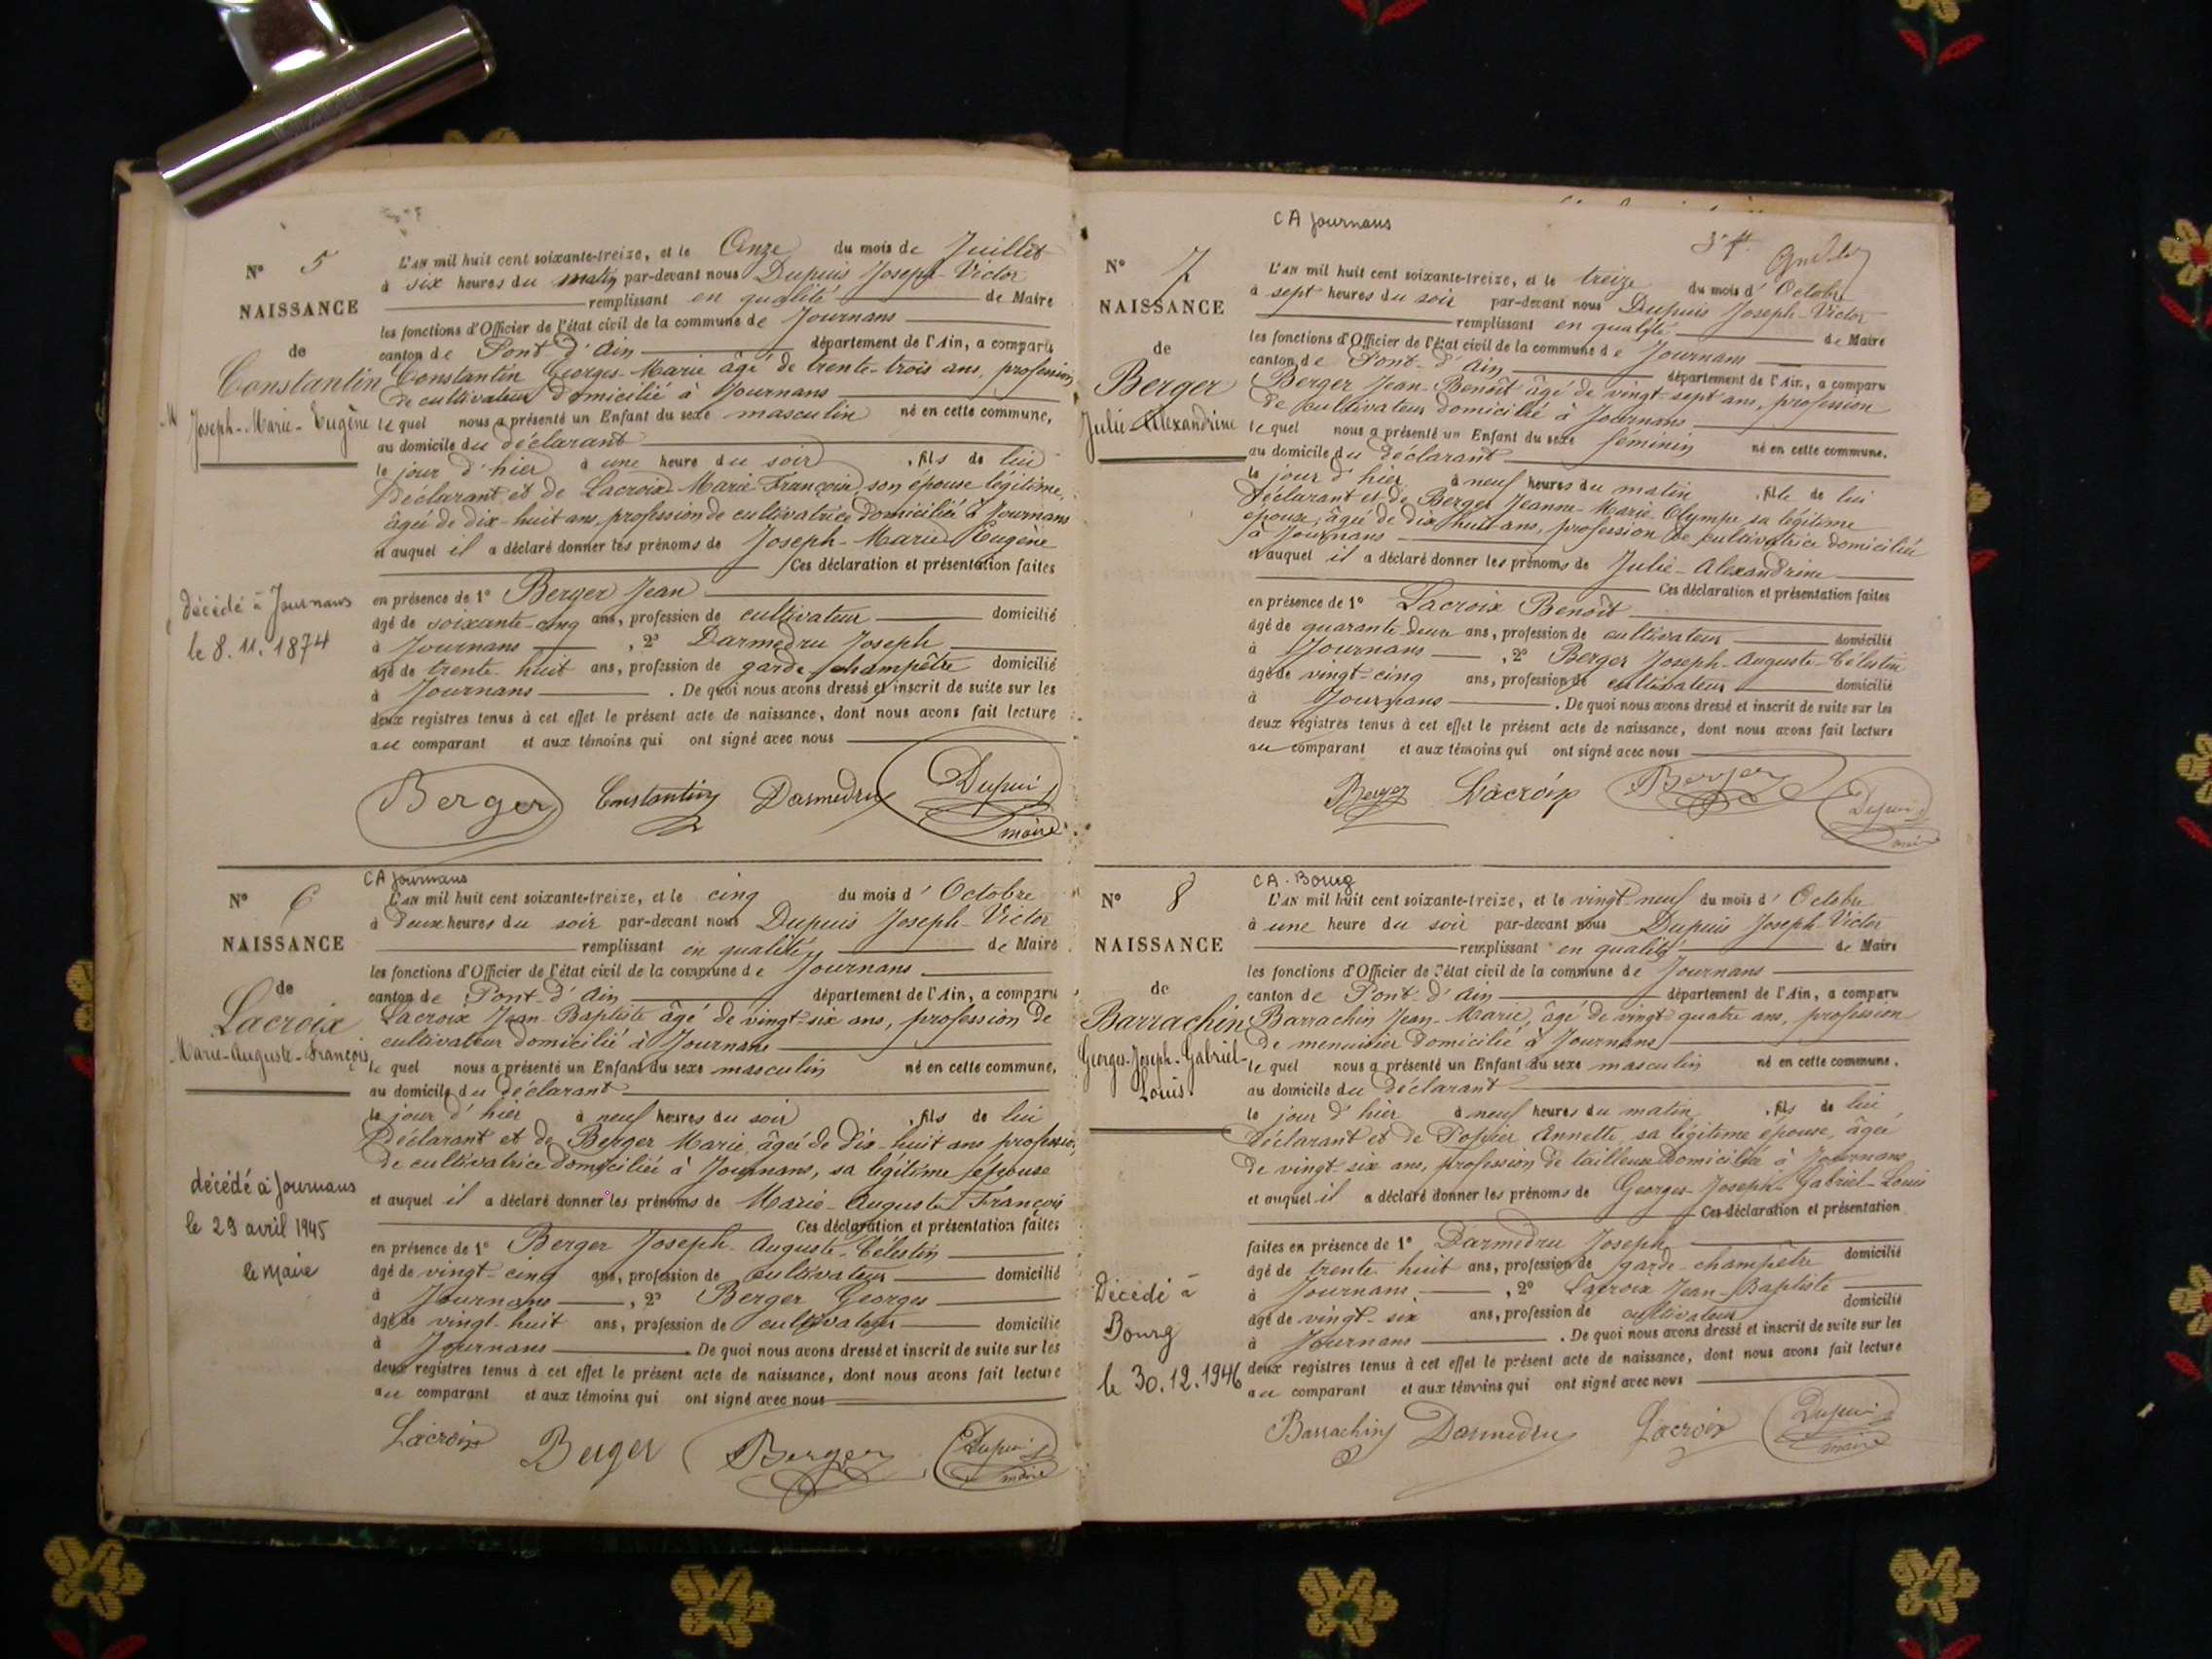 N° 5
NAISSANCE
de
Constantin
Joseph-Marie-Eugène
décédé à Journans
le 8.11.1874
L'AN mil huit cent soixante-treize, et le Onze du mois de Juillet
à six heures du matin par-devant nous Dupuis Joseph-Victor
remplissant en qualité de Maire
les fonctions d'Officier de l'état civil de la commune de Journans
canton de Pont-d'Ain département de l'Ain, a comparu
Constantin Georges-Marie âgé de trente-trois ans, profession
de cultivateur domicilié à Journans
lequel nous a présenté un Enfant du sexe masculin né en cette commune,
au domicile du déclarant
le jour d'hier à une heure du soir, fils de lui
Déclarant et de Lacroix Marie Françoise, son épouse légitime,
âgée de dix-huit ans, profession de cultivatrice domiciliée à Journans
et auquel il a déclaré donner les prénoms de Joseph-Marie-Eugène
Ces déclaration et présentation faites
en présence de 1° Berger Jean
âgé de soixante-cinq ans, profession de cultivateur domicilié
à Journans, 2° Darmedru Joseph
âgé de trente-huit ans, profession de garde-champêtre domicilié
à Journans. De quoi nous avons dressé et inscrit de suite sur les
deux registres tenus à cet effet le présent acte de naissance, dont nous avons fait lecture
au comparant et aux témoins qui ont signé avec nous
Berger Constantin Darmedru Dupuis
maire
N° 6
NAISSANCE
de
Lacroix
Marie-Auguste-François
décédé à Journans
le 29 avril 1945
le Maire
CA Journans
L'AN mil huit cent soixante-treize, et le cinq du mois d'Octobre
à deux heures du soir par-devant nous Dupuis Joseph-Victor
remplissant en qualité de Maire
les fonctions d'Officier de l'état civil de la commune de Journans
canton de Pont-d'Ain département de l'Ain, a comparu
Lacroix Jean-Baptiste âgé de vingt-six ans, profession de
cultivateur domicilié à Journans
lequel nous a présenté un Enfant du sexe masculin né en cette commune,
au domicile du déclarant
le jour d'hier à neuf heures du soir, fils de lui
Déclarant et de Berger Marie, âgée de dix-huit ans profession
de cultivatrice domiciliée à Journans, sa légitime épouse
et auquel il a déclaré donner les prénoms de Marie-Auguste-François
Ces déclaration et présentation faites
en présence de 1° Berger Joseph-Auguste-Célestin
âgé de vingt-cinq ans, profession de cultivateur domicilié
à Journans, 2° Berger Georges
âgé de vingt-huit ans, profession de cultivateur domicilié
à Journans. De quoi nous avons dressé et inscrit de suite sur les
deux registres tenus à cet effet le présent acte de naissance, dont nous avons fait lecture
au comparant et aux témoins qui ont signé avec nous
Lacroix Berger Berger Dupuis
maire
CA Journans
N° 7
NAISSANCE
de
Berger
Julie-Alexandrine
L'AN mil huit cent soixante-treize, et le treize du mois d'Octobre
à sept heures du soir par-devant nous Dupuis Joseph-Victor
remplissant en qualité de Maire
les fonctions d'Officier de l'état civil de la commune de Journans
canton de Pont-d'Ain département de l'Ain, a comparu
Berger Jean-Benoît âgé de vingt-sept ans, profession
de cultivateur domicilié à Journans
lequel nous a présenté un Enfant du sexe féminin né en cette commune,
au domicile du déclarant
le jour d'hier à neuf heures du matin, fille de lui
Déclarant et de Berger Jeanne-Marie-Olympe sa légitime
épouse, âgée de dix huit ans, profession de cultivatrice domiciliée
à Journans
et auquel il a déclaré donner les prénoms de Julie-Alexandrine
Ces déclaration et présentation faites
en présence de 1° Lacroix Benoît
âgé de quarante-deux ans, profession de cultivateur domicilié
à Journans, 2° Berger Joseph-Auguste-Célestin
âgé de vingt-cinq ans, profession de cultivateur domicilié
à Journans. De quoi nous avons dressé et inscrit de suite sur les
deux registres tenus à cet effet le présent acte de naissance, dont nous avons fait lecture
au comparant et aux témoins qui ont signé avec nous
Berger Lacroix Berger Dupuis
maire
N° 8
NAISSANCE
de
Barrachin
Georges-Joseph-Gabriel-
Louis
Décédé à
Bourg
le 30.12.1946
CA. Bourg
L'AN mil huit cent soixante-treize, et le vingt-neuf du mois d'Octobre
à une heure du soir par-devant nous Dupuis Joseph-Victor
remplissant en qualité de Maire
les fonctions d'Officier de l'état civil de la commune de Journans
canton de Pont-d'Ain département de l'Ain, a comparu
Barrachin Jean-Marie, âgé de vingt-quatre ans, profession
de menuisier domicilié à Journans
lequel nous a présenté un Enfant du sexe masculin né en cette commune,
au domicile du déclarant
le jour d'hier à neuf heures du matin, fils de lui
Déclarant et de Annette, sa légitime épouse, âgée
de vingt-six ans, profession de tailleuse domiciliée à Journans
et auquel il a déclaré donner les prénoms de Georges-Joseph-Gabriel-Louis
Ces déclaration et présentation
faites en présence de 1° Darmedru Joseph
âgé de trente-huit ans, profession de garde-champêtre domicilié
à Journans, 2° Lacroix Jean-Baptiste
âgé de vingt-six ans, profession de cultivateur domicilié
à Journans. De quoi nous avons dressé et inscrit de suite sur les
deux registres tenus à cet effet le présent acte de naissance, dont nous avons fait lecture
au comparant et aux témoins qui ont signé avec nous
Barrachin Darmedru Lacroix Dupuis
maire